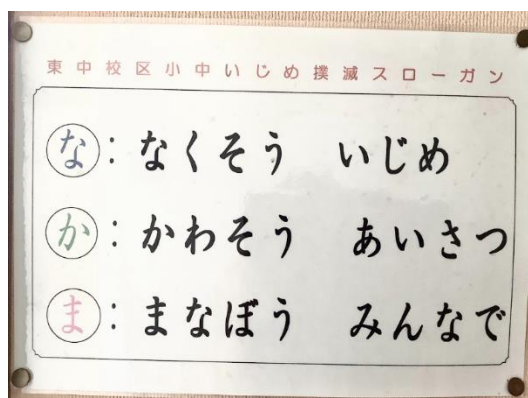 東中校区小中いじめ撲滅スローガン
な：なくそう　いじめ
か：かわそう　あいさつ
ま：まなぼう　みんなで